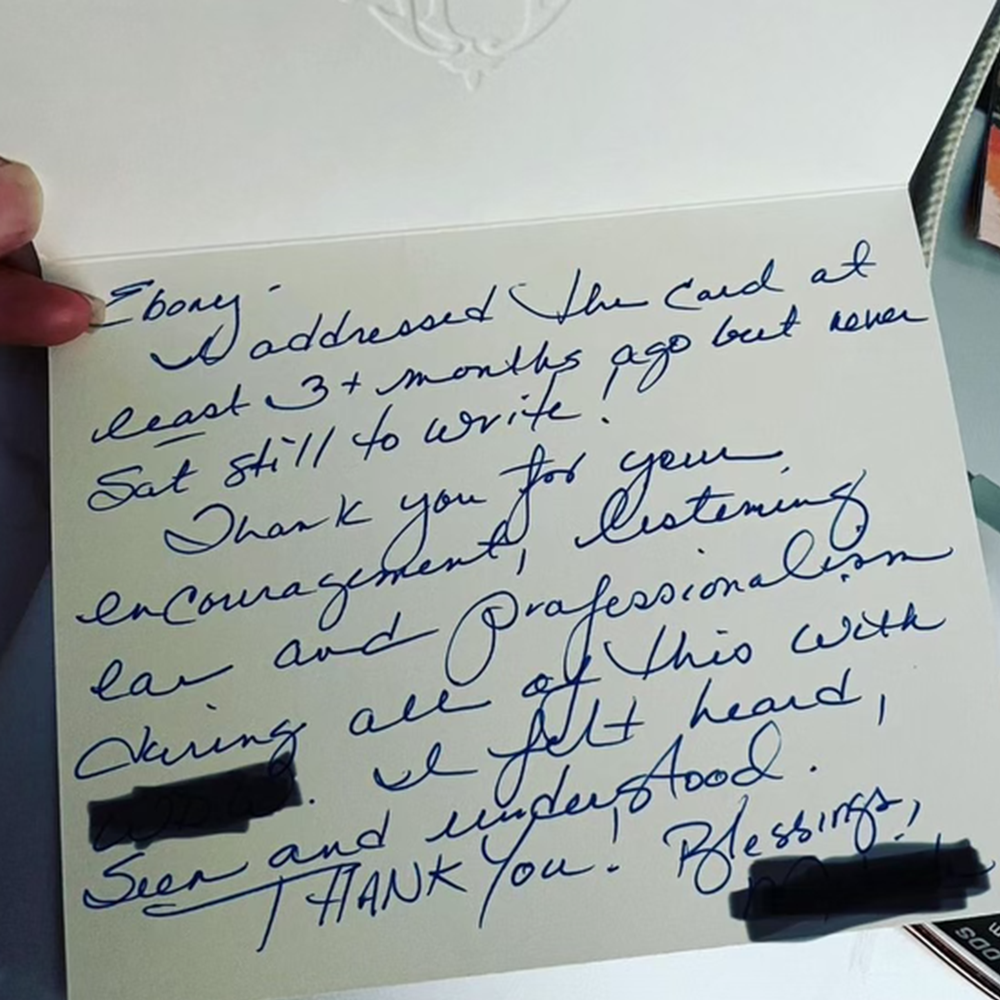 Ebony -
I addressed the card at
least 3+ months ago but never
Sat still to write!
Thank you for your
encouragement, listening
ear and professionalism
during all of this with
I felt heard,
Seen and understood.
THANK You! Blessings,
ODS